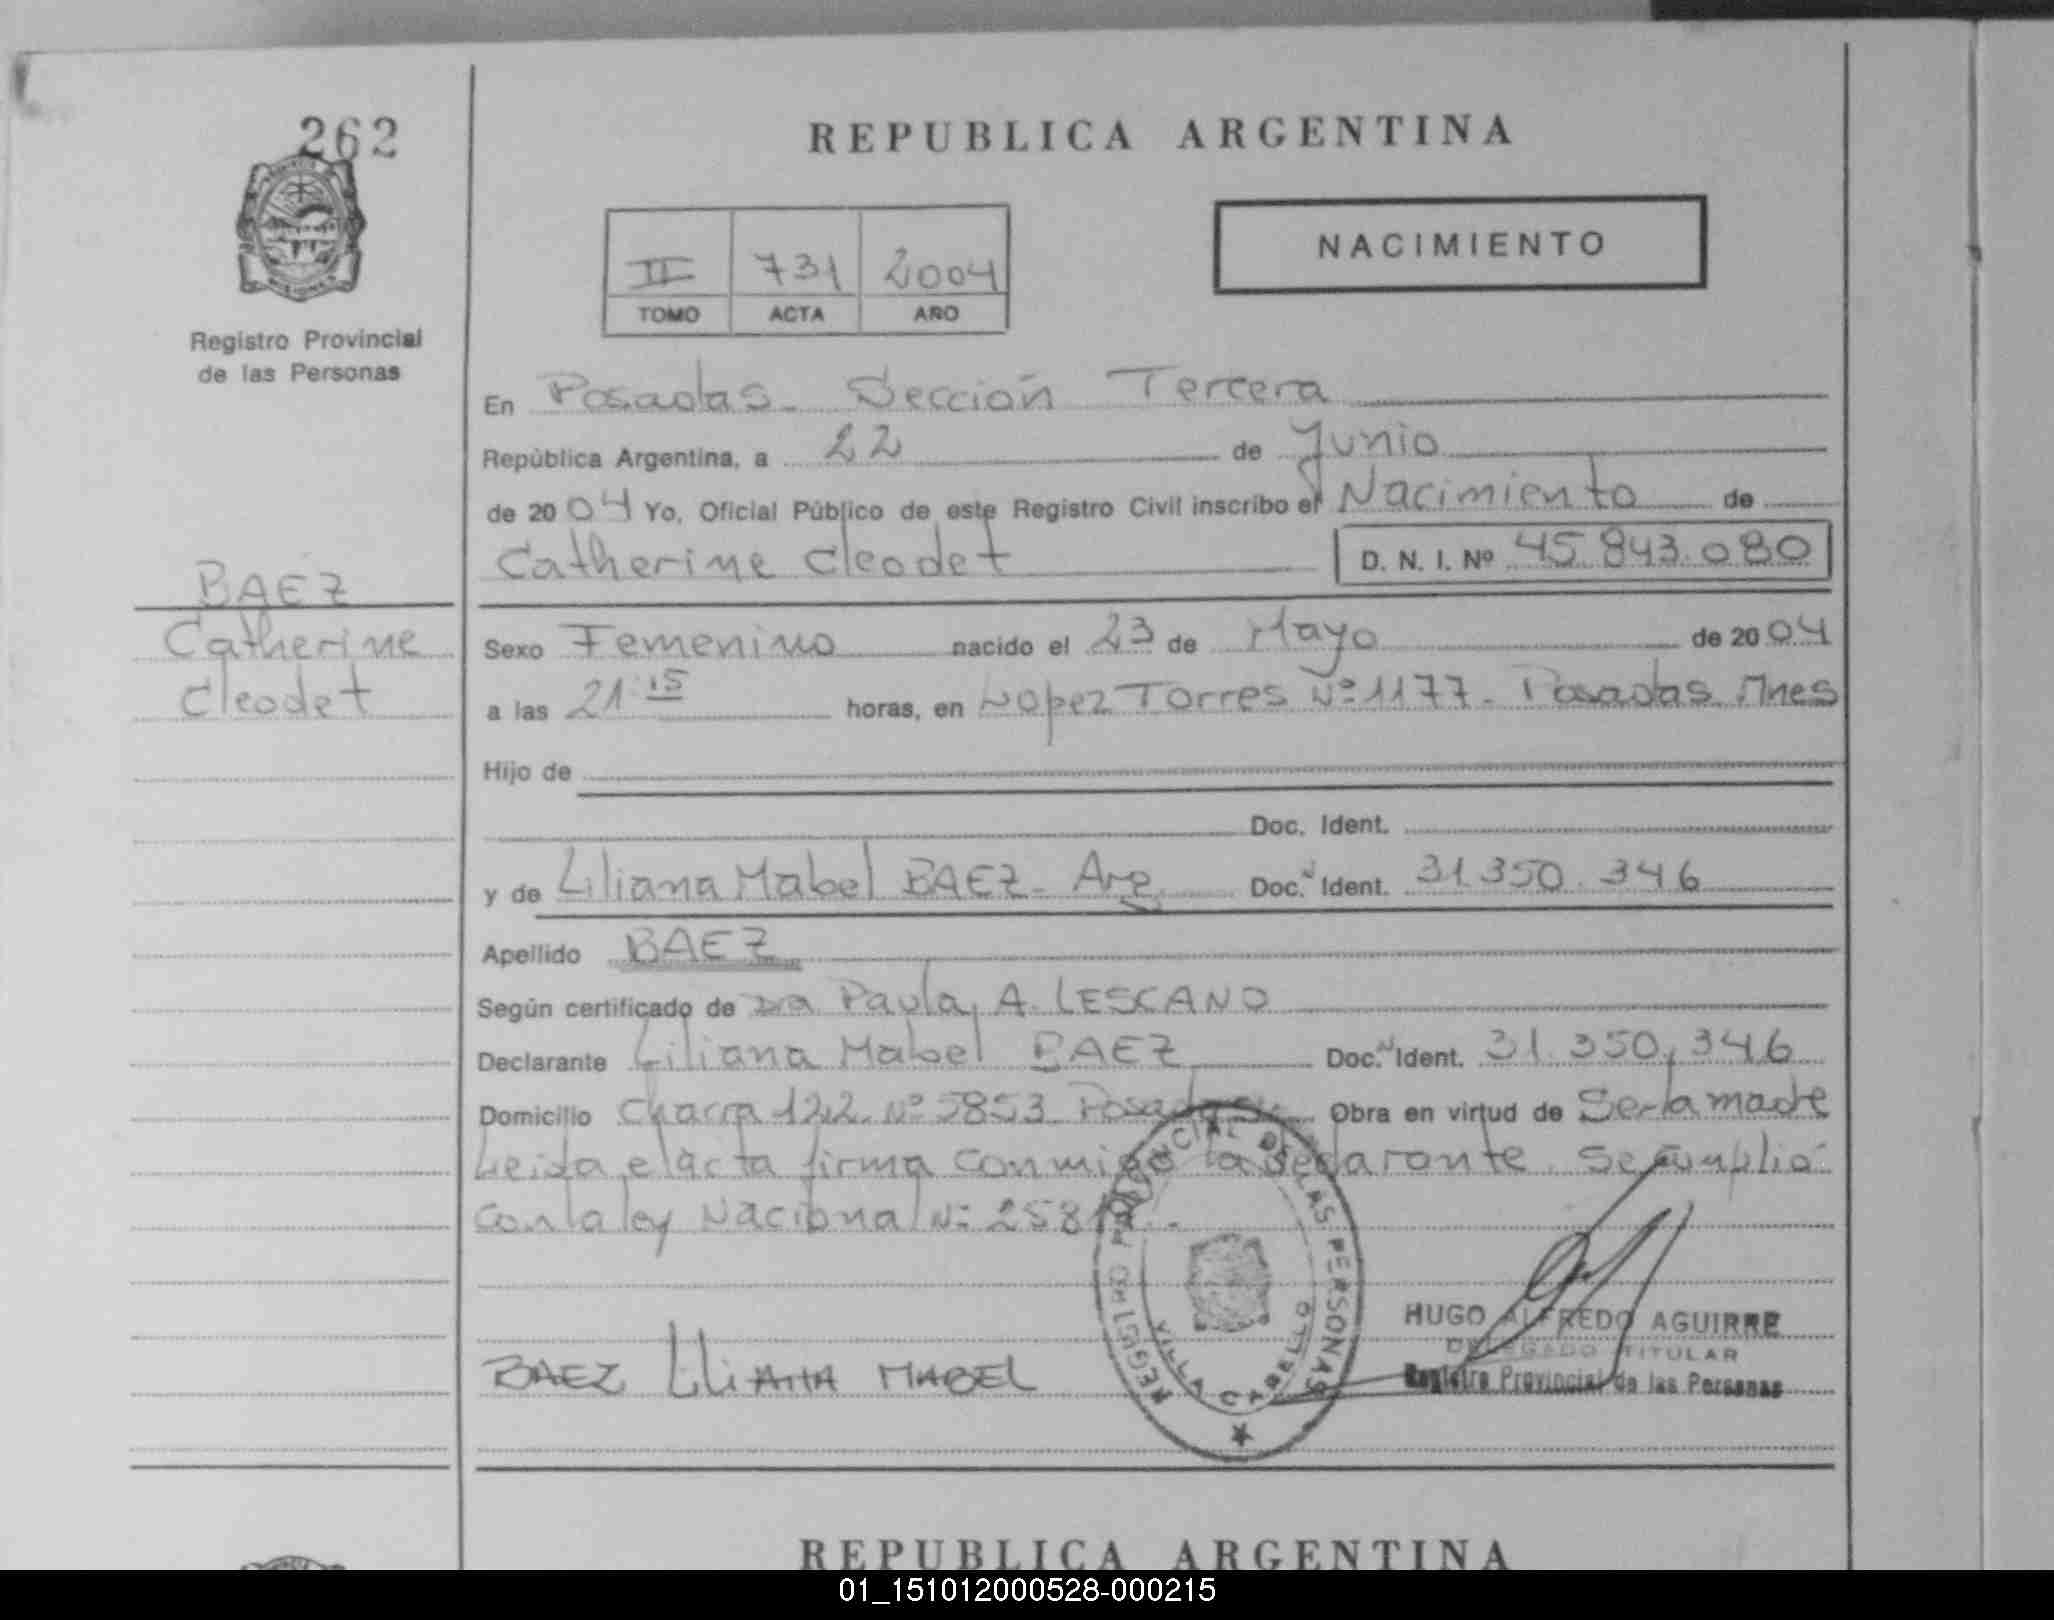 262
REPUBLICA ARGENTINA
NACIMIENTO
II 731 2004
TOMO ACTA AÑO
Registro Provincial
de las Personas
En Posadas - Sección Tercera
República Argentina, a 22 de Junio
de 2004 Yo, Oficial Público de este Registro Civil inscribo el Nacimiento de
Catherine Cleodet D. N. I. Nº 45.843.080
BAEZ
Catherine
Cleodet
Sexo Femenino nacido el 23 de Mayo de 2004
a las 21 15 horas, en Lopez Torres Nº 1177 - Posadas Mnes
Hijo de
Doc. Ident.
y de Liliana Mabel BAEZ - Arg. Doc. Ident. 31.350.346
Apellido BAEZ
Según certificado de Dra Paula A. LESCANO
Declarante Liliana Mabel BAEZ Doc. Ident. 31.350.346
Domicilio Chacra 122 Nº 5853 Posadas Obra en virtud de Ser la madre
Leida el acta firma conmigo la declarante. Se cumplió
con la ley Nacional Nº
REGISTRO PROVINCIAL DE LAS PERSONAS
VILLA CABELLO
HUGO ALFREDO AGUIRRE
DELEGADO TITULAR
Registro Provincial de las Personas
BAEZ LILIANA MABEL
REPUBLICA ARGENTINA
01_151012000528-000215